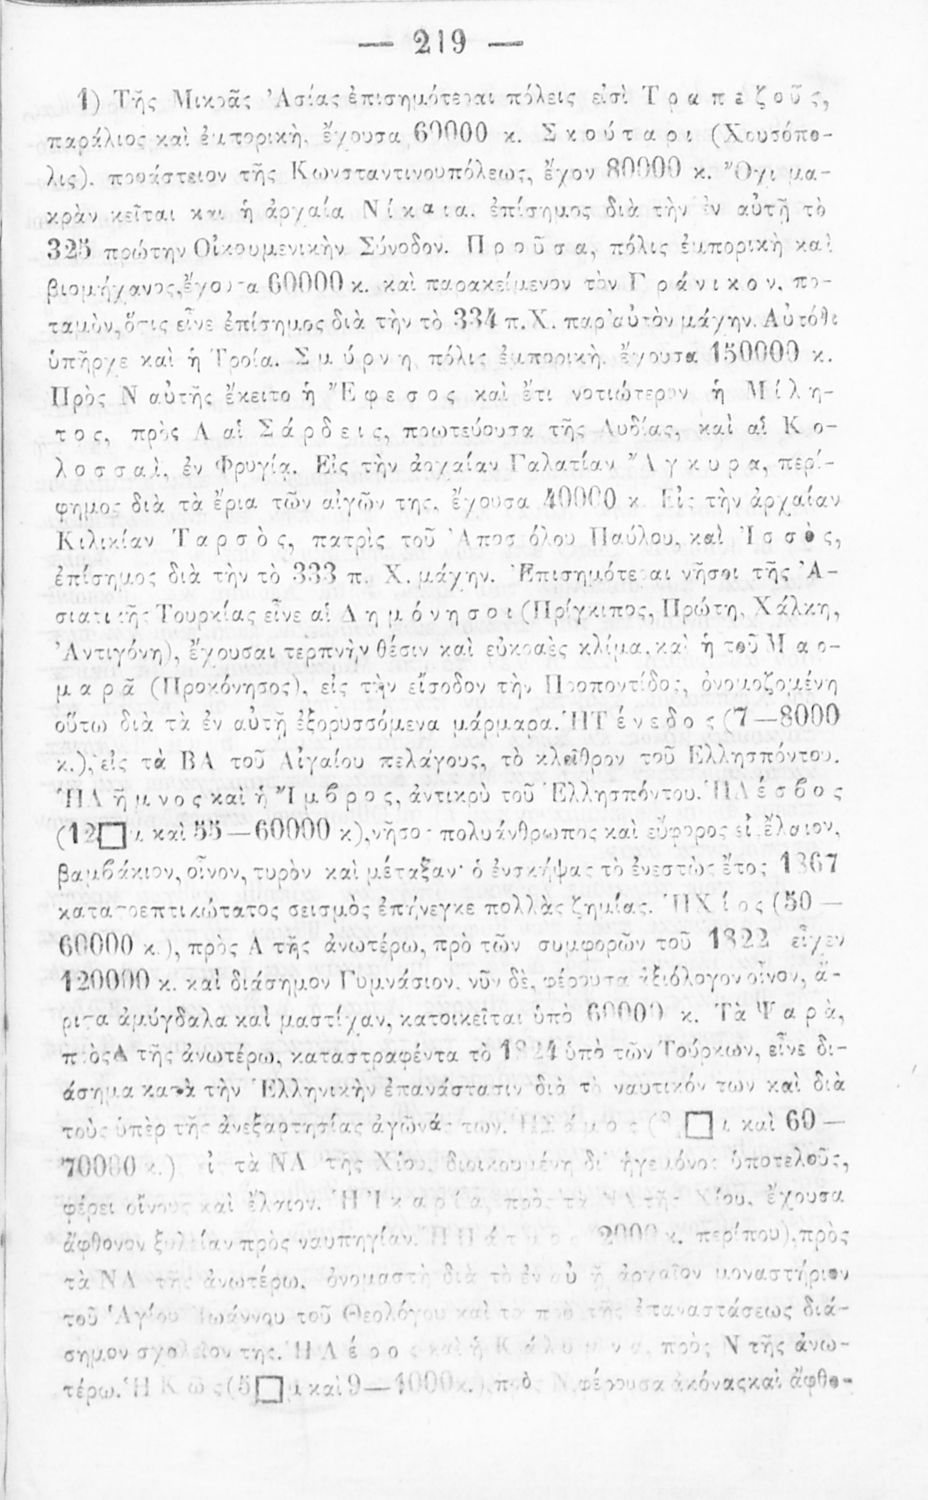 — 219 —
1) Τῆς Μικρᾶς Ἀσίας ἐπισημότεραι πόλεις εἰσὶ Τραπεζοῦς,
παράλιος καὶ ἐμπορικὴ, ἔχουσα 60000 κ. Σκούταρι (Χρυσόπο-
λις), προάστειον τῆς Κωνσταντινουπόλεως, ἔχον 80000 κ. Ὄχι μα-
κρὰν κεῖται καὶ ἡ ἀρχαία Νίκαια, ἐπίσημος διὰ τὴν ἐν αὐτῇ τὸ
325 πρώτην Οἰκουμενικὴν Σύνοδον. Προῦσα, πόλις ἐμπορικὴ καὶ
βιομήχανος, ἔχουσα 60000 κ. καὶ παρακείμενον τὸν Γράνικον, πο-
ταμὸν, ὅςις εἶνε ἐπίσημος διὰ τὴν τὸ 334 π.Χ. παρ' αὐτὸν μάχην. Αὐτόθι
ὑπῆρχε καὶ ἡ Τροία. Σμύρνη, πόλις ἐμπορικὴ, ἔχουσα 150000 κ.
Πρὸς Ν αὐτῆς ἔκειτο ἡ Ἔφεσος καὶ ἔτι νοτιώτερον ἡ Μίλη-
τος, πρὸς Α αἱ Σάρδεις, πρωτεύουσα τῆς Λυδίας, καὶ αἱ Κο-
λοσσαὶ, ἐν Φρυγίᾳ. Εἰς τὴν ἀρχαίαν Γαλατίαν Ἄγκυρα, περί-
φημος διὰ τὰ ἔρια τῶν αἰγῶν της, ἔχουσα 40000 κ. Εἰς τὴν ἀρχαίαν
Κιλικίαν Ταρσὸς, πατρὶς τοῦ Ἀποστόλου Παύλου, καὶ Ἰσσὸς,
ἐπίσημος διὰ τὴν τὸ 333 π. Χ. μάχην. Ἐπισημότεραι νῆσοι τῆς Ἀ-
σιατικῆς Τουρκίας εἶνε αἱ Δημόνησοι (Πρίγκιπος, Πρώτη, Χάλκη,
Ἀντιγόνη), ἔχουσαι τερπνὴν θέσιν καὶ εὐκραὲς κλίμα, καὶ ἡ τοῦ Μαρ-
μαρᾶ (Προκόνησος), εἰς τὴν εἴσοδον τῆς Προποντίδος, ὀνομαζομένη
οὕτω διὰ τὰ ἐν αὐτῇ ἐξορυσσόμενα μάρμαρα. Ἡ Τένεδος (7—8000
κ.), εἰς τὰ ΒΑ τοῦ Αἰγαίου πελάγους, τὸ κλεῖθρον τοῦ Ἑλλησπόντου.
Ἡ Λῆμνος καὶ ἡ Ἴμβρος, ἀντικρὺ τοῦ Ἑλλησπόντου. Ἡ Λέσβος
(12□μ καὶ 55—60000 κ), νῆσος πολυάνθρωπος καὶ εὔφορος εἰς ἔλαιον,
βαμβάκιον, οἶνον, τυρὸν καὶ μέταξαν· ὁ ἐνσκήψας τὸ ἐνεστὼς ἔτος 1867
καταστρεπτικώτατος σεισμὸς ἐπήνεγκε πολλὰς ζημίας. Ἡ Χίος (50—
60000 κ.), πρὸς Α τῆς ἀνωτέρω, πρὸ τῶν συμφορῶν τοῦ 1822 εἶχεν
120000 κ. καὶ διάσημον Γυμνάσιον, νῦν δὲ, φέρουσα ἀξιόλογον οἶνον, ἄ-
ριςα ἀμύγδαλα καὶ μαστίχαν, κατοικεῖται ὑπὸ 60000 κ. Τὰ Ψαρὰ,
πρὸς Α τῆς ἀνωτέρω, καταστραφέντα τὸ 1824 ὑπὸ τῶν Τούρκων, εἶνε δι-
άσημα κατὰ τὴν Ἑλληνικὴν ἐπανάστασιν διὰ τὸ ναυτικόν των καὶ διὰ
τοὺς ὑπὲρ τῆς ἀνεξαρτησίας ἀγῶνάς των. Ἡ Σάμος ( □μ καὶ 60—
70000 κ.) εἰς τὰ ΝΑ τῆς Χίου, διοικουμένη δι' ἡγεμόνος ὑποτελοῦς,
φέρει οἶνους καὶ ἔλαιον. Ἡ Ἰκαρία, πρὸς τὰ ΝΔ τῆς Χίου, ἔχουσα
ἄφθονον ξυλείαν πρὸς ναυπηγίαν. Ἡ Πάτμος 2000 κ. περίπου), πρὸς
τὰ ΝΑ τῆς ἀνωτέρω, ὀνομαστὴ διὰ τὸ ἐν αὐτῇ ἀρχαῖον μοναστήριον
τοῦ Ἁγίου Ἰωάννου τοῦ Θεολόγου καὶ τὸ πρὸ τῆς ἐπαναστάσεως διά-
σημον σχολεῖον της. Ἡ Λέρος καὶ ἡ Κάλυμνα, πρὸς Ν τῆς ἀνω-
τέρω. Ἡ Κῶς (5□μ καὶ 9—1000 κ.), πρὸς Ν, φέρουσα ἀκόνας καὶ ἄφθο-